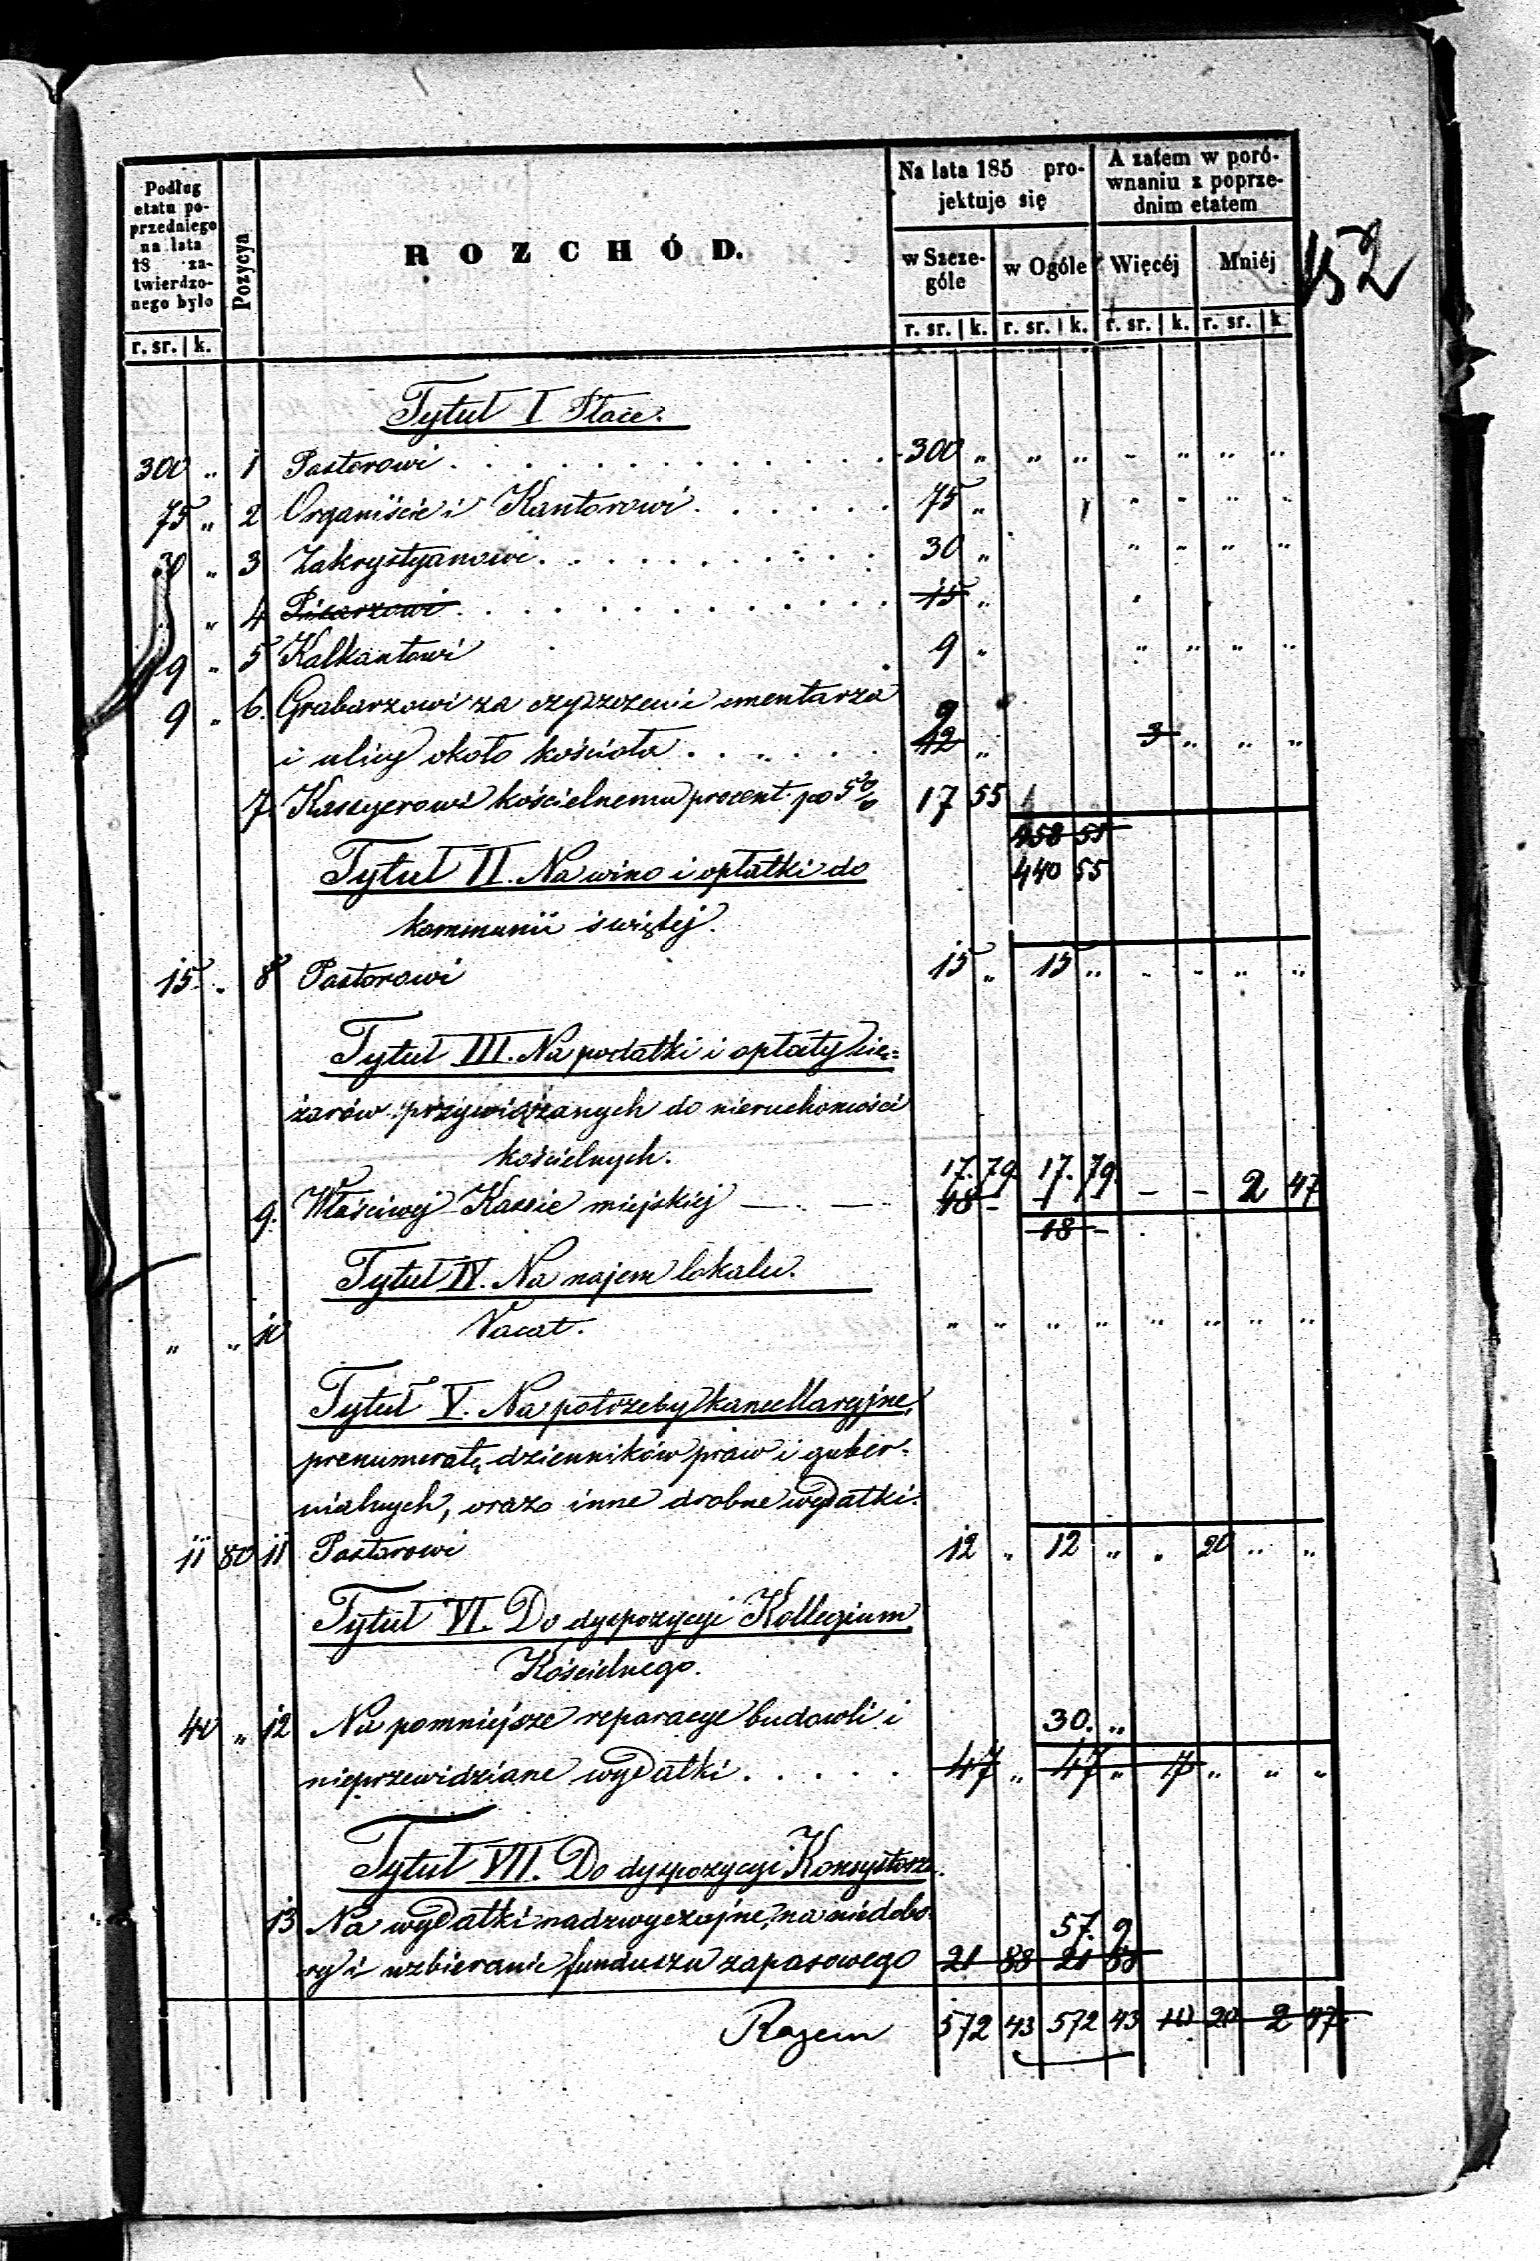 152
Podług etatu poprzedniego na lata 18 zatwierdzonego było
Pozycya
ROZCHÓD.
Na lata 185 projektuje się
A zatem w porównaniu z poprzednim etatem
w Szczególe
w Ogóle
Więcéj
Mniéj
r. sr. | k.
r. sr. | k. r. sr. | k. r. sr. | k. r. sr. | k.
Tytuł I Płace.
300 „ 1 Pastorowi . . . . . . . . . . . 300 „ „ „ „ „ „ „
75 „ 2 Organiście i Kantorowi . . . . . . 75 „ „ „ „ „
30 „ 3 Zakrystyanowi . . . . . . . . . 30 „ „ „ „ „
„ 4 Pisarzowi . . . . . . . . . . . 15 „
9 „ 5 Kalkantowi 9 „ „ „ „ „
9 „ 6. Grabarzowi za czyszczenie cmentarza 9
i ulicy około kościoła . . . . . . 12 „ 3 „ „ „
7. Kassyerowi kościelnemu procent po 5% 17 55
458 55
Tytuł II. Na wino i opłatki do 440 55
kommunii świętej.
15 „ 8 Pastorowi 15 „ 15 „ „ „ „ „
Tytuł III. Na podatki i opłaty cię=
żarów przywiązanych do nieruchomości
kościelnych. 17. 79. 17. 79.
9. Właściwej Kassie miejskiej — . — 18 - — — 2 47
18 -
Tytuł IV. Na najem lokalu.
„ „ 10 Vacat. „ „ „ „ „ „ „ „
Tytuł V. Na potrzeby kancellaryjne,
prenumeratę dzienników praw i guber=
nialnych, oraz inne drobne wydatki.
11 80 11 Pastorowi 12 „ 12 „ „ 20 „ „
Tytuł VI. Do dyspozycyi Kollegium
Kościelnego.
40 „ 12 Na pomniejsze reparacye budowli i 30. „
nieprzewidziane wydatki . . . . . 47 „ 47 „ 7 „ „ „
Tytuł VII. Do dyspozycyi Konsystorza.
13 Na wydatki nadzwyczajne, na niedobo= 57. 9
ry i uzbieranie funduszu zapasowego 21 88 21 88
Razem 572 43 572 43 10 20 2 47